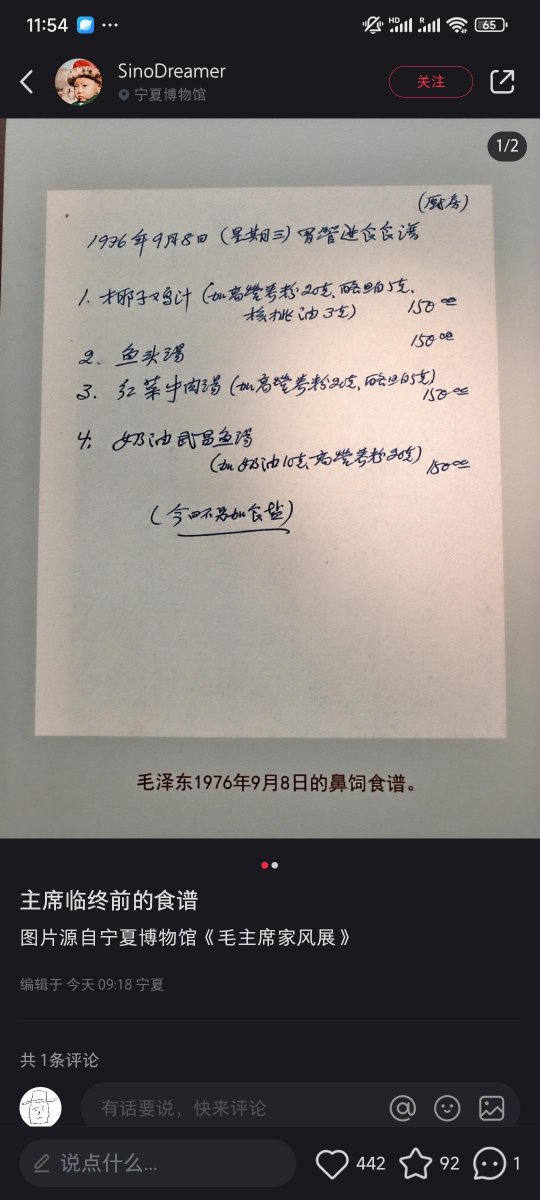 11:54
HD
R
65
SinoDreamer
宁夏博物馆
关注
1/2
(厨房)
1976年9月8日 (星期三) 胃管进食食谱
1. 椰子鸡汁 (加高营养粉20克、酪旦白5克、
核桃油3克) 150cc
2. 鱼头汤 150cc
3. 红菜牛肉汤 (加高营养粉20克、酪旦白5克) 150cc
4. 奶油武昌鱼汤
(加奶油10克、高营养粉20克) 150cc
(今日不另加食盐)
毛泽东1976年9月8日的鼻饲食谱。
主席临终前的食谱
图片源自宁夏博物馆《毛主席家风展》
编辑于 今天 09:18 宁夏
共 1条评论
有话要说，快来评论
说点什么...
442
92
1